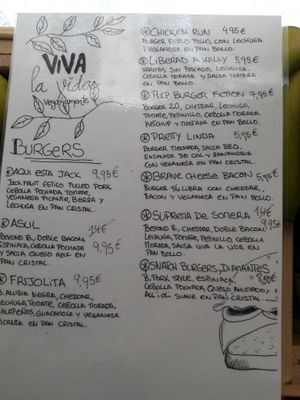 VIVA
la vida
veganamente
BURGERS
AQUI ESTA JACK 9,95€
JACK FRUIT ESTILO PULLED PORK
CEBOLLA POCHADA, TOMATE,
VEGANESA PICANTE, BERRA Y
LECHUGA EN PAN CRISTAL.
ASUL 14€
BEYOND B, DOBLE BACON,
ESPINACA, CEBOLLA POCHADA 9,95€
Y SALSA QUESO AZUL EN
PAN CRISTAL.
FRIJOLITA 9,95€
B. ALUBIA NEGRA, CHEDDAR,
LECHUGA, TOMATE, CEBOLLA MORADA,
JALAPEÑOS, GUACAMOLE Y VEGANESA
PICANTE EN PAN CRISTAL.
CHICKEN RUN 4,95€
BURGER ESTILO POLLO, CON LECHUGA
Y VEGANESA EN PAN BOLLO.
LIBERAD A WILLY 5,95€
VARITAS SIN PESCADO, LECHUGA,
CEBOLLA, TOMATE Y SALSA TARTARA
EN PAN BOLLO.
PULP BURGER FICTION 7,95€
BURGER 2.0, CHEDDAR, LECHUGA,
TOMATE, PEPINILLO, CEBOLLA MORADA,
KETCHUP Y MOSTAZA EN PAN BOLLO.
PRETTY LINDA 5,95€
BURGER TIERNADA, SALSA BBQ,
ENSALADA DE COL Y ZANAHORIA
CON VEGANESA EN PAN CRISTAL.
BRAVE CHEESE BACON 5,95€
BURGER 1/4 LIBRA CON CHEDDAR,
BACON Y VEGANESA EN PAN BOLLO.
SUPREMA DE SOMERA 14€
BEYOND B, CHEDDAR, DOBLE BACON,
LECHUGA, TOMATE, PEPINILLO, CEBOLLA
MORADA, SALSA VIVA LA VIDA EN
PAN BOLLO.
BURGERS, DIAMANTES 8,50€
B. PORK STYLE, ESPINACA,
CEBOLLA POCHADA, QUESO AHUMADO Y
ALI.OLI SUAVE EN PAN CRISTAL.